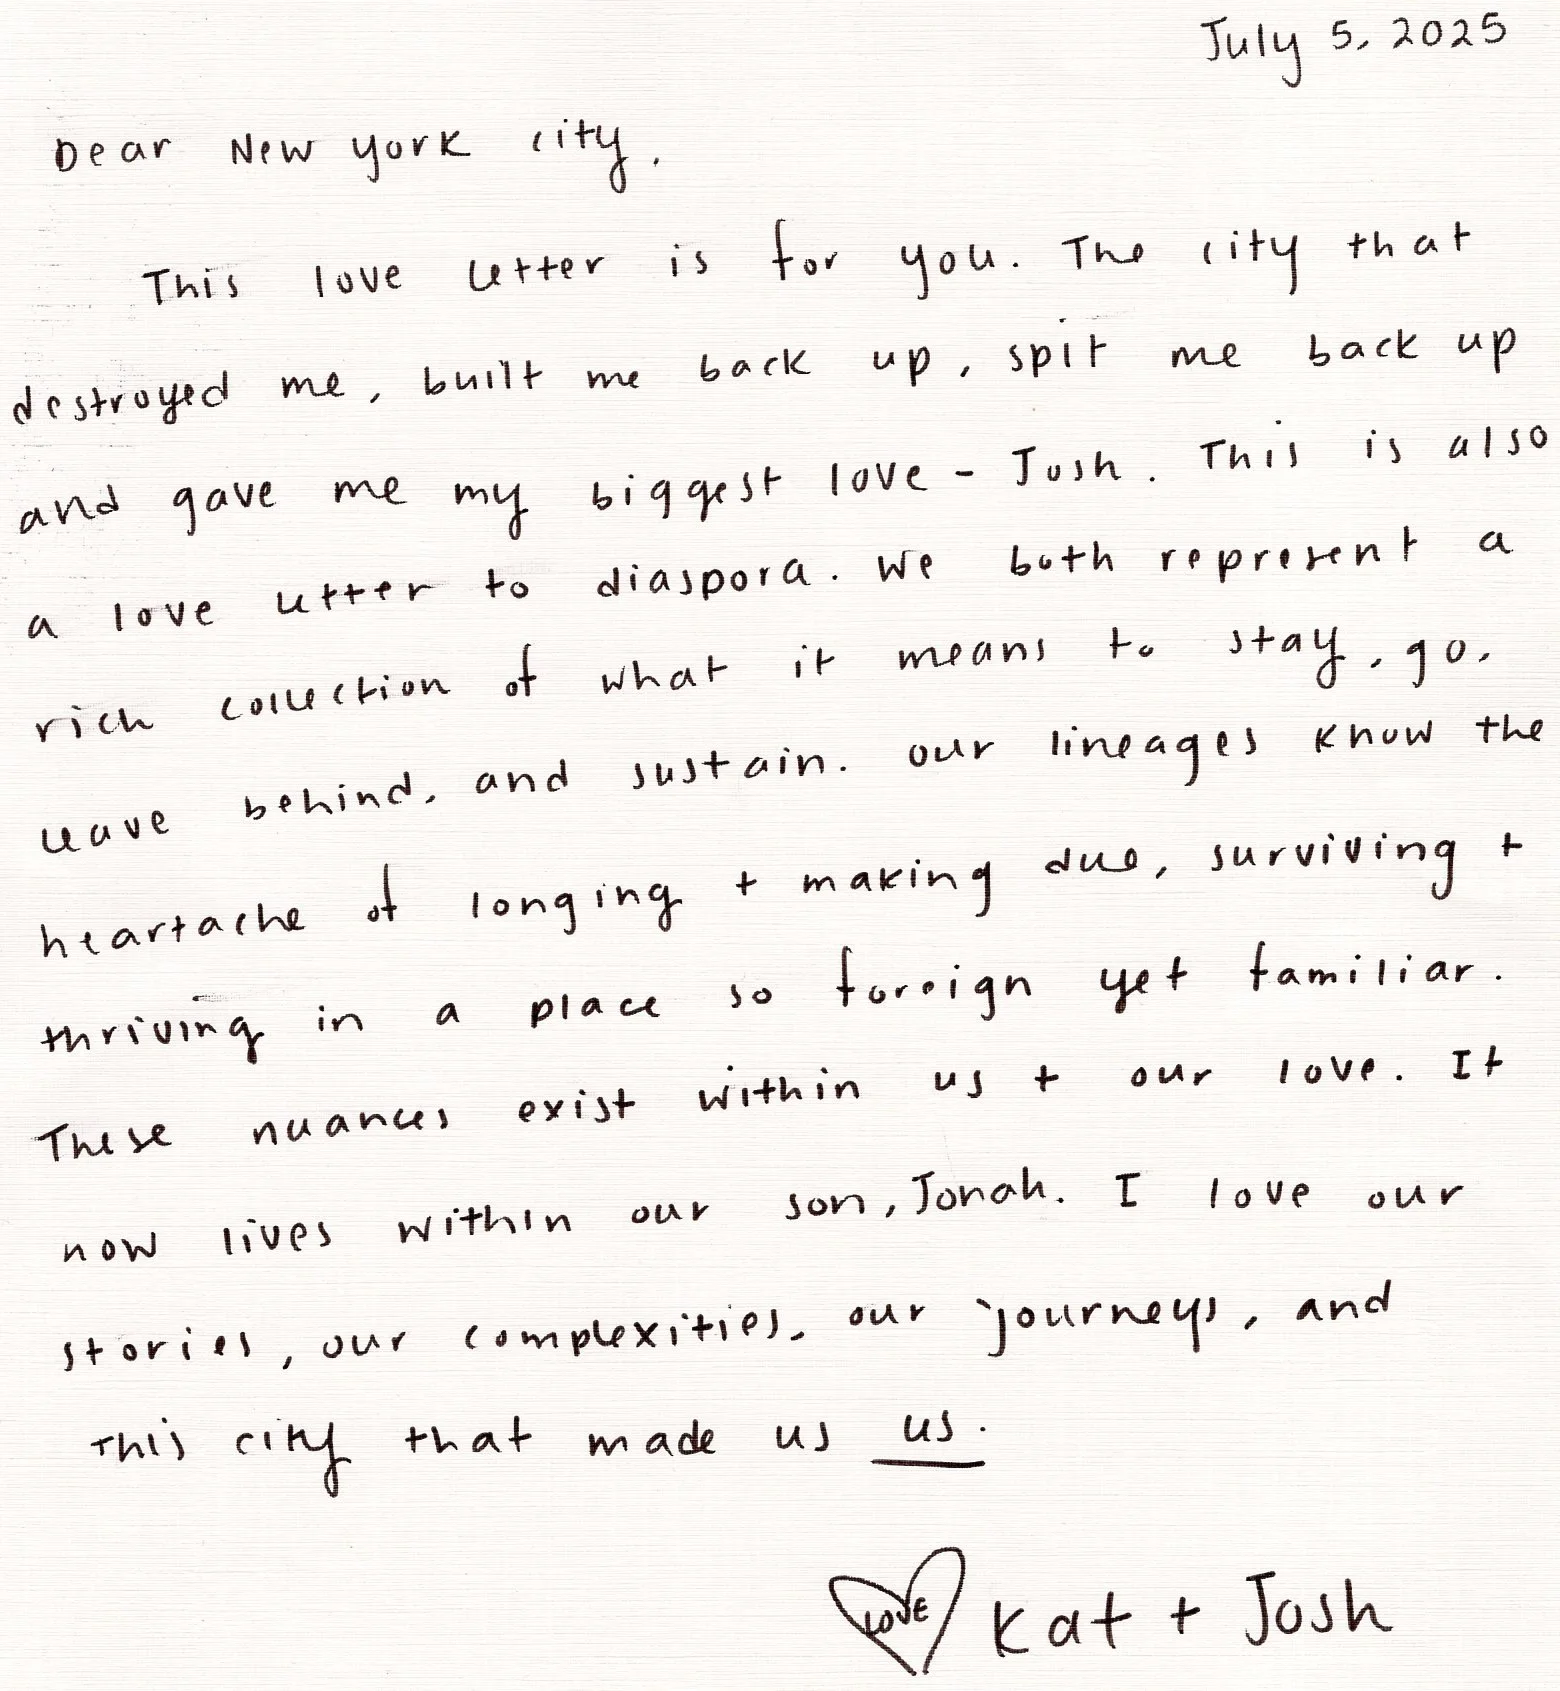 July 5, 2025
Dear New York City,
This love letter is for you. The city that
destroyed me, built me back up, spit me back up
and gave me my biggest love - Josh. This is also
a love letter to diaspora. We both represent a
rich collection of what it means to stay, go,
leave behind, and sustain. Our lineages know the
heartache of longing + making due, surviving +
thriving in a place so foreign yet familiar.
These nuances exist within us + our love. It
now lives within our son, Jonah. I love our
stories, our complexities, our journeys, and
this city that made us us.
LOVE Kat + Josh